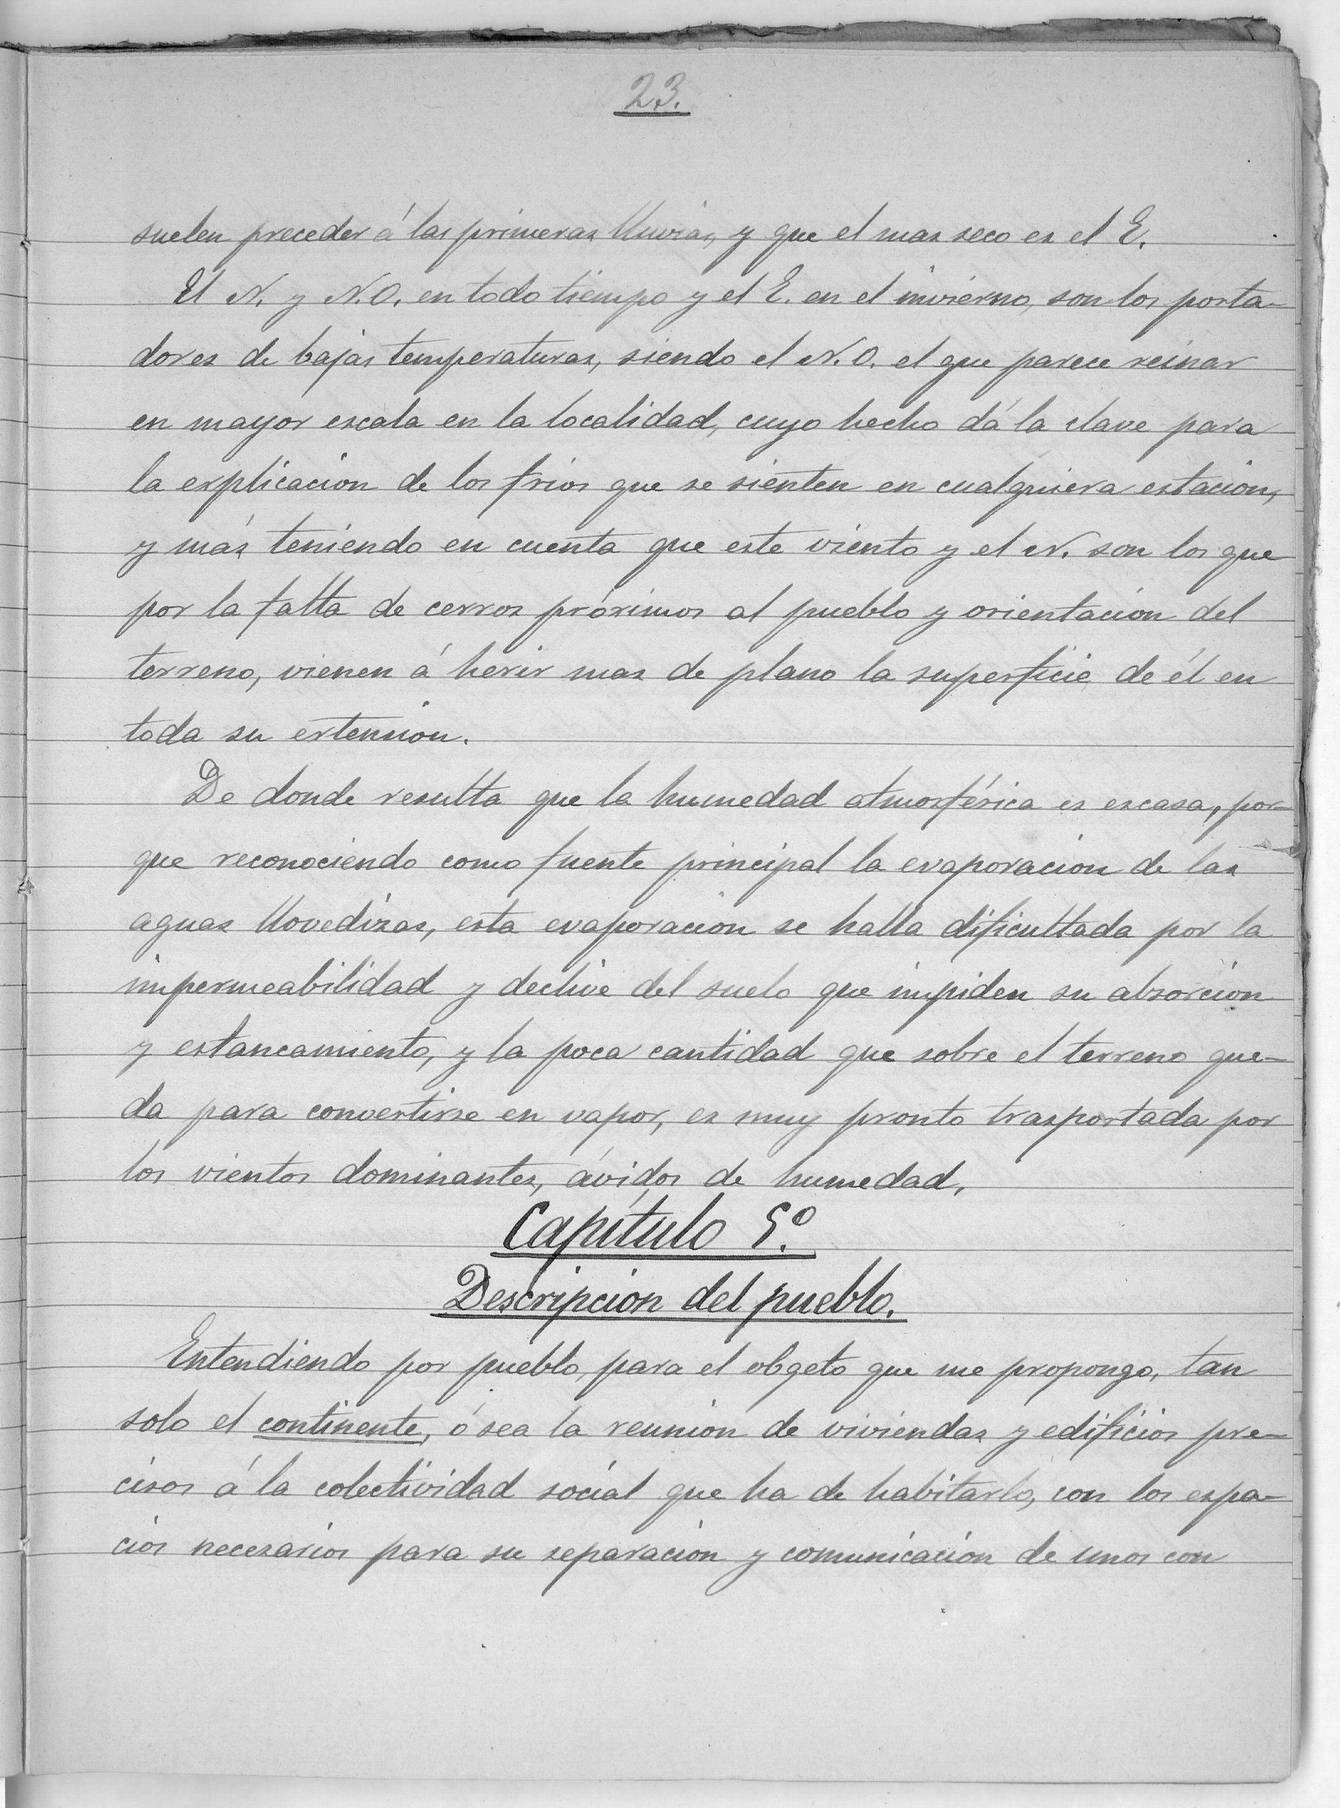 23.
suelen preceder á las primeras lluvias, y que el mas seco es el E.
El N. y N.O. en todo tiempo y el E. en el invierno, son los porta-
dores de bajas temperaturas, siendo el N.O. el que parece reinar
en mayor escala en la localidad, cuyo hecho dá la clave para
la explicación de los frios que se sienten en cualquiera estación,
y más teniendo en cuenta que este viento y el N. son los que
por la falta de cerros próximos al pueblo y orientación del
terreno, vienen á herir mas de plano la superficie de él en
toda su extensión.
De donde resulta que la humedad atmosférica es escasa, por-
que reconociendo como fuente principal la evaporación de las
aguas llovedizas, esta evaporación se halla dificultada por la
impermeabilidad y declive del suelo que impiden su absorción
y estancamiento, y la poca cantidad que sobre el terreno que-
da para convertirse en vapor, es muy pronto trasportada por
los vientos dominantes, ávidos de humedad.
Capítulo 5.º
Descripción del pueblo.
Entendiendo por pueblo, para el obgeto que me propongo, tan
solo el continente, ó sea la reunión de viviendas y edificios pre-
cisos á la colectividad social que ha de habitarlo, con los espa-
cios necesarios para su separación y comunicación de unos con